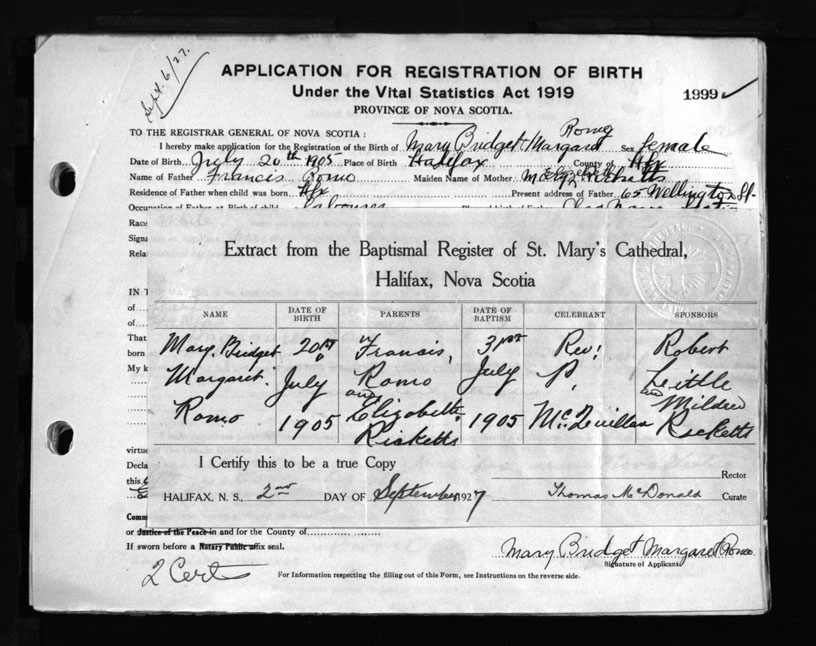 Sept. 6/27.
APPLICATION FOR REGISTRATION OF BIRTH
Under the Vital Statistics Act 1919
1999 ✓
PROVINCE OF NOVA SCOTIA.
TO THE REGISTRAR GENERAL OF NOVA SCOTIA :
I hereby make application for the Registration of the Birth of Mary Bridget Margaret Sex female
Date of Birth July 20th 1905 Place of Birth Halifax County of Hfx
Name of Father Francis Romo Maiden Name of Mother Ricketts
Residence of Father when child was born Hfx Present address of Father 65 Wellington St.
Occupation of Father at Birth of child Labourer
Race White
Signa
Rela
Extract from the Baptismal Register of St. Mary's Cathedral,
Halifax, Nova Scotia
IN T
of
of
That
born
My k
NAME DATE OF BIRTH PARENTS DATE OF BAPTISM CELEBRANT SPONSORS
Mary Bridget 20th Francis, 31st Rev. Robert
Margaret July Romo July P. Little
and and Mildred
Romo 1905 Elizabeth 1905 Ricketts
Ricketts
I Certify this to be a true Copy
virtue
Decla
this
Rector
HALIFAX, N. S., 2nd DAY OF September 1927 Thomas McDonald Curate
Comm
or Justice of the Peace in and for the County of
If sworn before a Notary Public affix seal.
Mary Bridget Margaret Romo.
Signature of Applicant
2 Cert
For Information respecting the filling out of this Form, see Instructions on the reverse side.